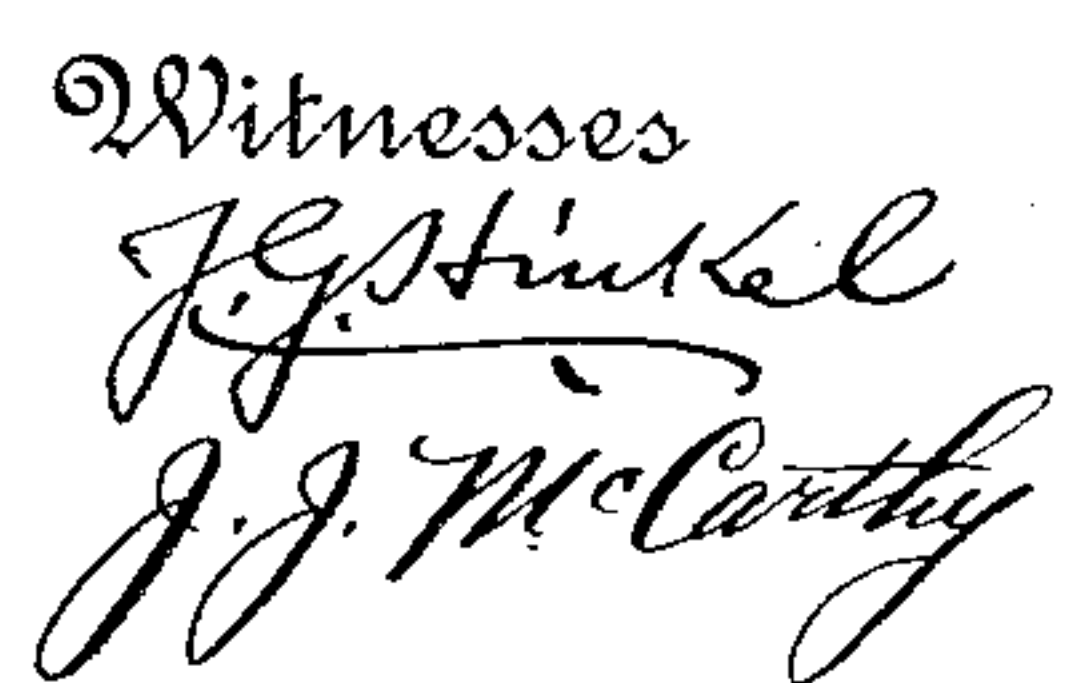 Witnesses
J. G. Stinkel
J. J. McCarthy